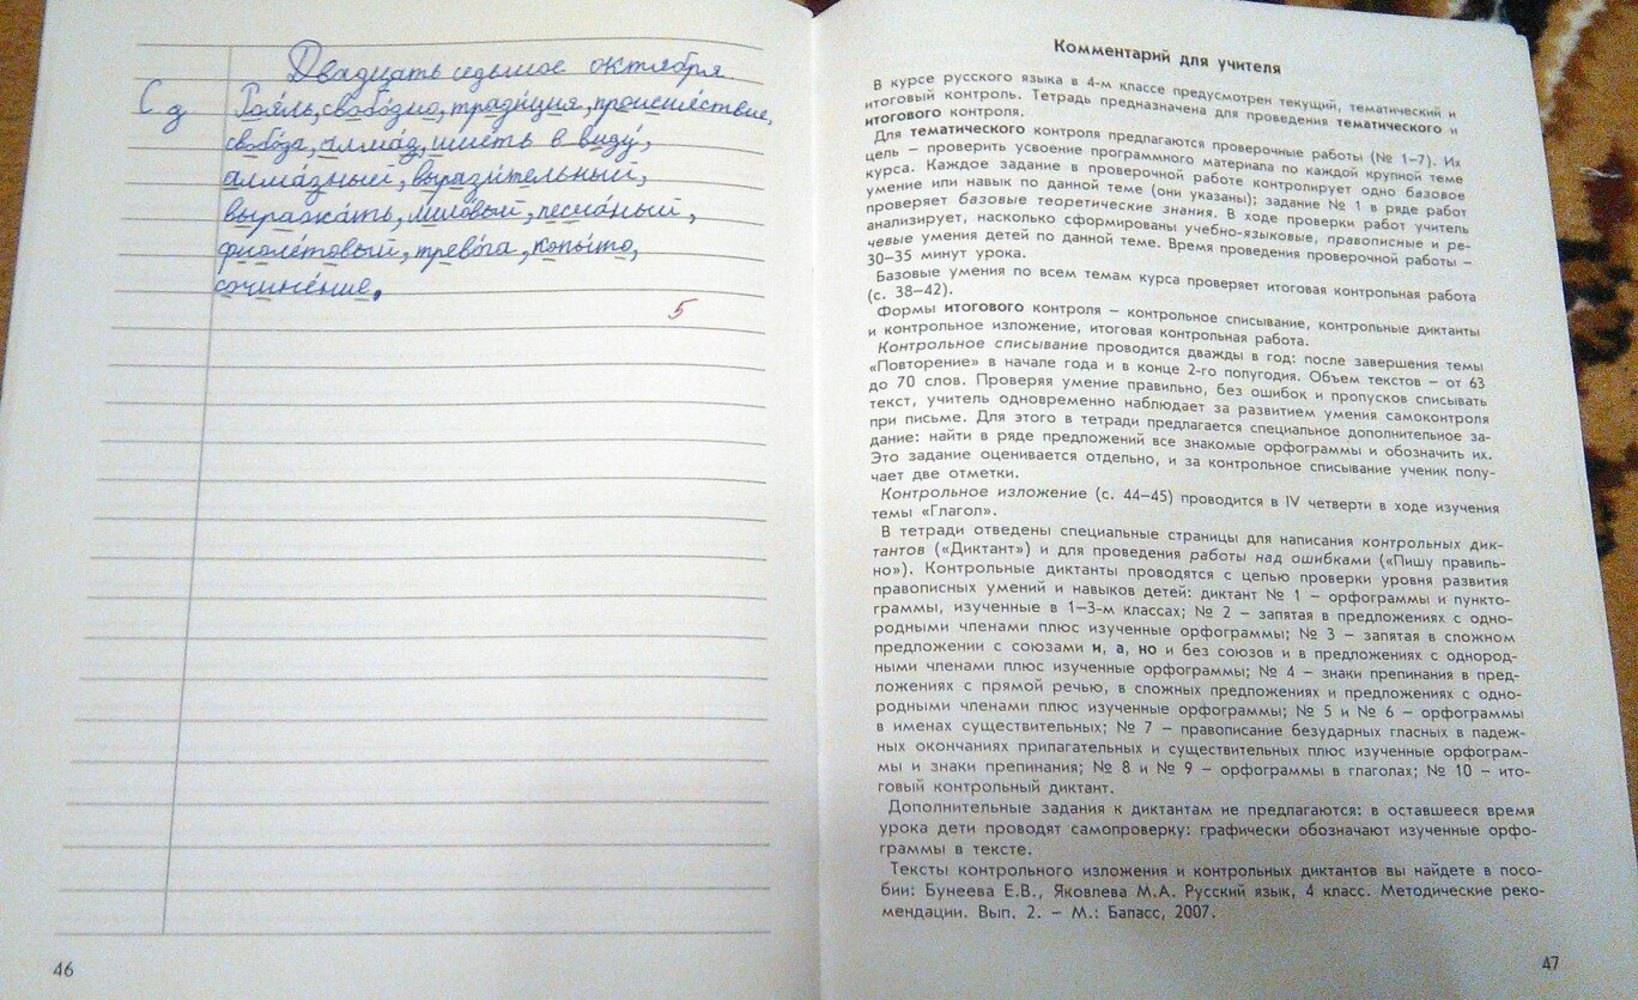 Двадцать седьмое октября.
С д Рояль, свободно, традиция, происшествие,
свобода, алмаз, иметь в виду,
алмазный, выразительный,
выражать, лиловый, песчаный,
фиолетовый, тревога, копыто,
сочинение.
5
46
Комментарий для учителя
В курсе русского языка в 4-м классе предусмотрен текущий, тематический и
итоговый контроль. Тетрадь предназначена для проведения тематического и
итогового контроля.
Для тематического контроля предлагаются проверочные работы (№ 1–7). Их
цель – проверить усвоение программного материала по каждой крупной теме
курса. Каждое задание в проверочной работе контролирует одно базовое
умение или навык по данной теме (они указаны); задание № 1 в ряде работ
проверяет базовые теоретические знания. В ходе проверки работ учитель
анализирует, насколько сформированы учебно-языковые, правописные и ре-
чевые умения детей по данной теме. Время проведения проверочной работы –
30–35 минут урока.
Базовые умения по всем темам курса проверяет итоговая контрольная работа
(с. 38–42).
Формы итогового контроля – контрольное списывание, контрольные диктанты
и контрольное изложение, итоговая контрольная работа.
Контрольное списывание проводится дважды в год: после завершения темы
«Повторение» в начале года и в конце 2-го полугодия. Объем текстов – от 63
до 70 слов. Проверяя умение правильно, без ошибок и пропусков списывать
текст, учитель одновременно наблюдает за развитием умения самоконтроля
при письме. Для этого в тетради предлагается специальное дополнительное за-
дание: найти в ряде предложений все знакомые орфограммы и обозначить их.
Это задание оценивается отдельно, и за контрольное списывание ученик полу-
чает две отметки.
Контрольное изложение (с. 44–45) проводится в IV четверти в ходе изучения
темы «Глагол».
В тетради отведены специальные страницы для написания контрольных дик-
тантов («Диктант») и для проведения работы над ошибками («Пишу правиль-
но»). Контрольные диктанты проводятся с целью проверки уровня развития
правописных умений и навыков детей: диктант № 1 – орфограммы и пункто-
граммы, изученные в 1–3-м классах; № 2 – запятая в предложениях с одно-
родными членами плюс изученные орфограммы; № 3 – запятая в сложном
предложении с союзами и, а, но и без союзов и в предложениях с однород-
ными членами плюс изученные орфограммы; № 4 – знаки препинания в пред-
ложениях с прямой речью, в сложных предложениях и предложениях с одно-
родными членами плюс изученные орфограммы; № 5 и № 6 – орфограммы
в именах существительных; № 7 – правописание безударных гласных в падеж-
ных окончаниях прилагательных и существительных плюс изученные орфограм-
мы и знаки препинания; № 8 и № 9 – орфограммы в глаголах; № 10 – ито-
говый контрольный диктант.
Дополнительные задания к диктантам не предлагаются: в оставшееся время
урока дети проводят самопроверку: графически обозначают изученные орфо-
граммы в тексте.
Тексты контрольного изложения и контрольных диктантов вы найдете в посо-
бии: Бунеева Е.В., Яковлева М.А. Русский язык, 4 класс. Методические реко-
мендации. Вып. 2. – М.: Баласс, 2007.
47